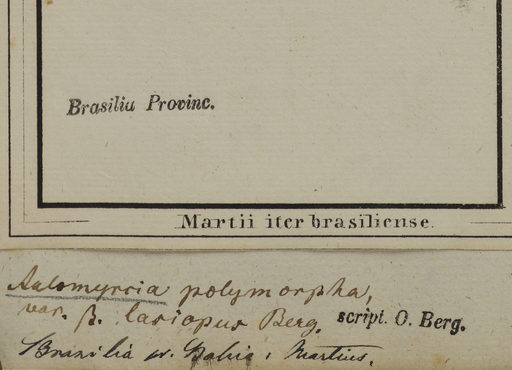 Brasilia Provinc.
Martii iter brasiliense.
Aulomyrcia polymorpha,
var. β. lasiopus Berg.
script. O. Berg.
Brasilia pr. Bahia: Martius.